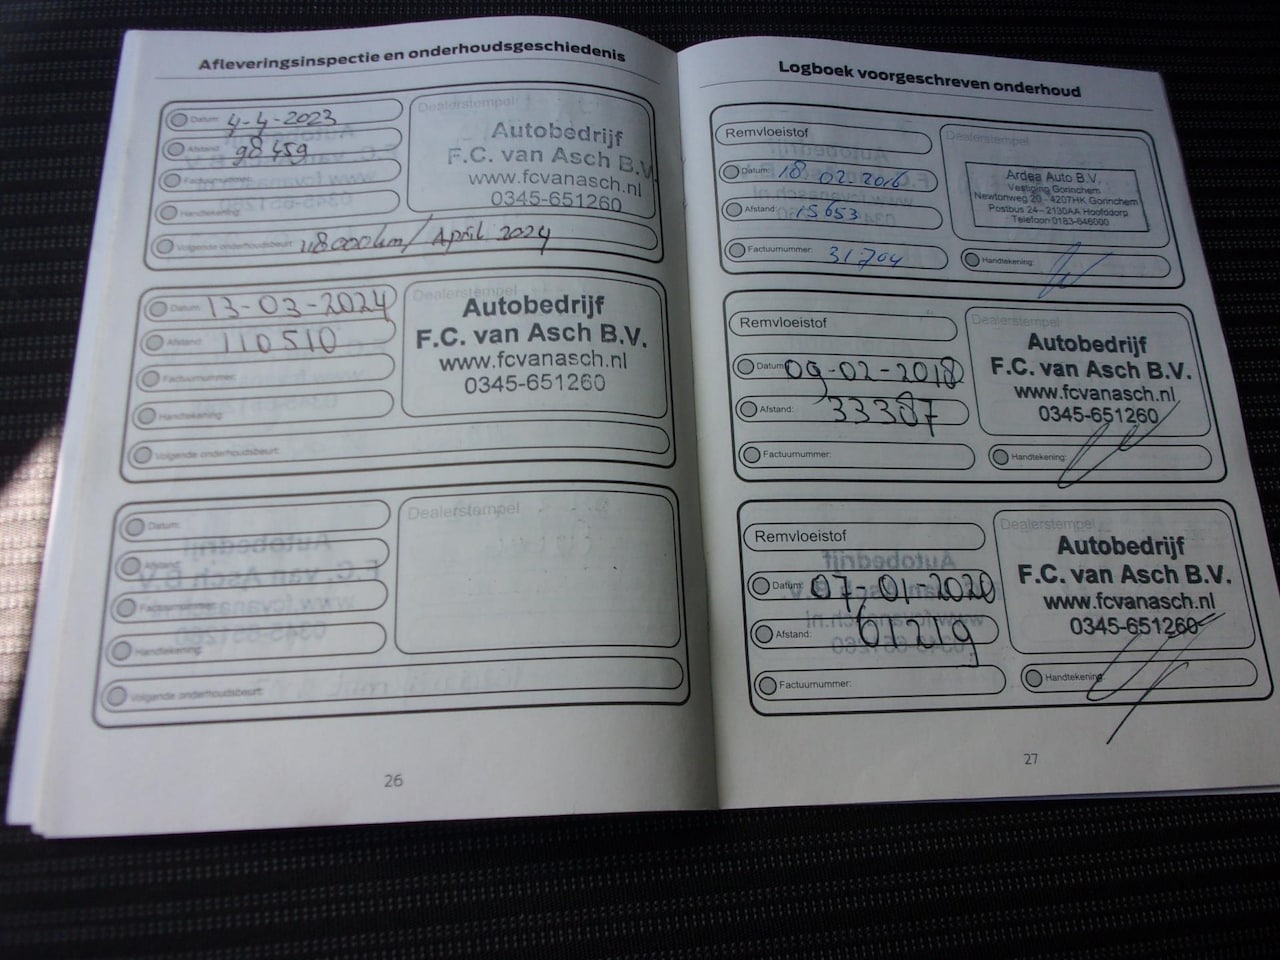 Afleveringsinspectie en onderhoudsgeschiedenis
Datum: 4-4-2023
Afstand: 98 459
Factuurnummer:
Handtekening:
Volgende onderhoudsbeurt: 118000km/ April 2024
Dealerstempel
Autobedrijf
F.C. van Asch B.V.
www.fcvanasch.nl
0345-651260
Datum: 13-03-2024
Afstand: 110510
Factuurnummer:
Handtekening:
Volgende onderhoudsbeurt:
Dealerstempel
Autobedrijf
F.C. van Asch B.V.
www.fcvanasch.nl
0345-651260
Datum:
Afstand:
Factuurnummer:
Handtekening:
Volgende onderhoudsbeurt:
Dealerstempel
26
Logboek voorgeschreven onderhoud
Remvloeistof
Datum: 18 02 2016
Afstand: 15653
Factuurnummer: 31704
Dealerstempel
Ardea Auto B.V.
Vestiging Gorinchem
Newtonweg 20 - 4207HK Gorinchem
Postbus 24 - 2130AA Hoofddorp
Telefoon 0183-646000
Handtekening:
Remvloeistof
Datum: 09-02-2018
Afstand: 33387
Factuurnummer:
Dealerstempel
Autobedrijf
F.C. van Asch B.V.
www.fcvanasch.nl
0345-651260
Handtekening:
Remvloeistof
Datum: 07-01-2020
Afstand: 61219
Factuurnummer:
Dealerstempel
Autobedrijf
F.C. van Asch B.V.
www.fcvanasch.nl
0345-651260
Handtekening:
27